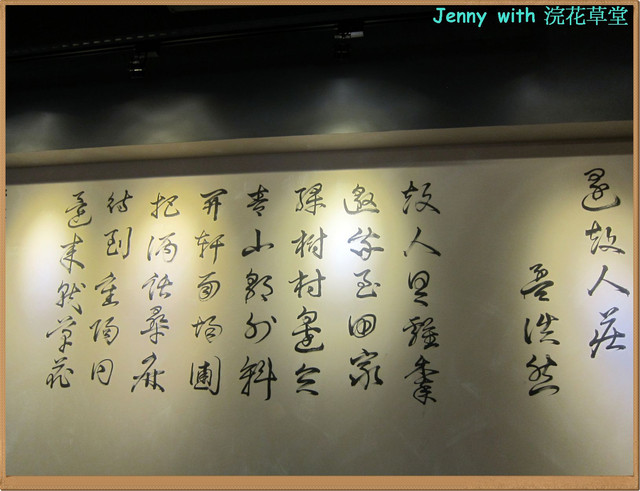 Jenny with 浣花草堂
過故人莊
孟浩然
故人具雞黍
邀我至田家
綠樹村邊合
青山郭外斜
開軒面場圃
把酒話桑麻
待到重陽日
還來就菊花